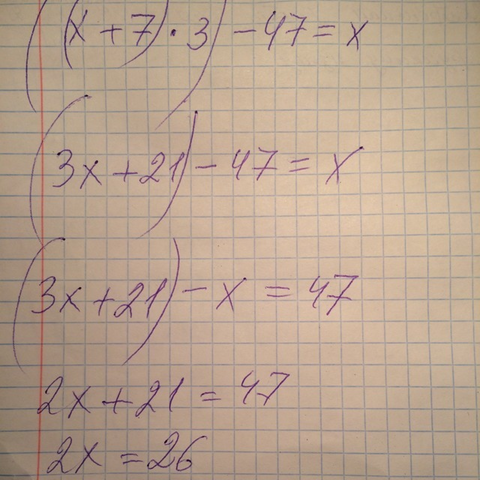 ((x + 7) · 3) - 47 = x
(3x + 21) - 47 = x
(3x + 21) - x = 47
2x + 21 = 47
2x = 26